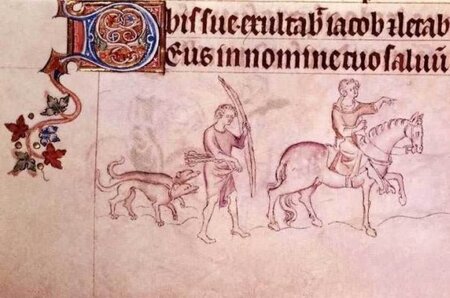 bis sue·exultab̄ iacob ⁊ letab
Deus in nomine tuo saluū